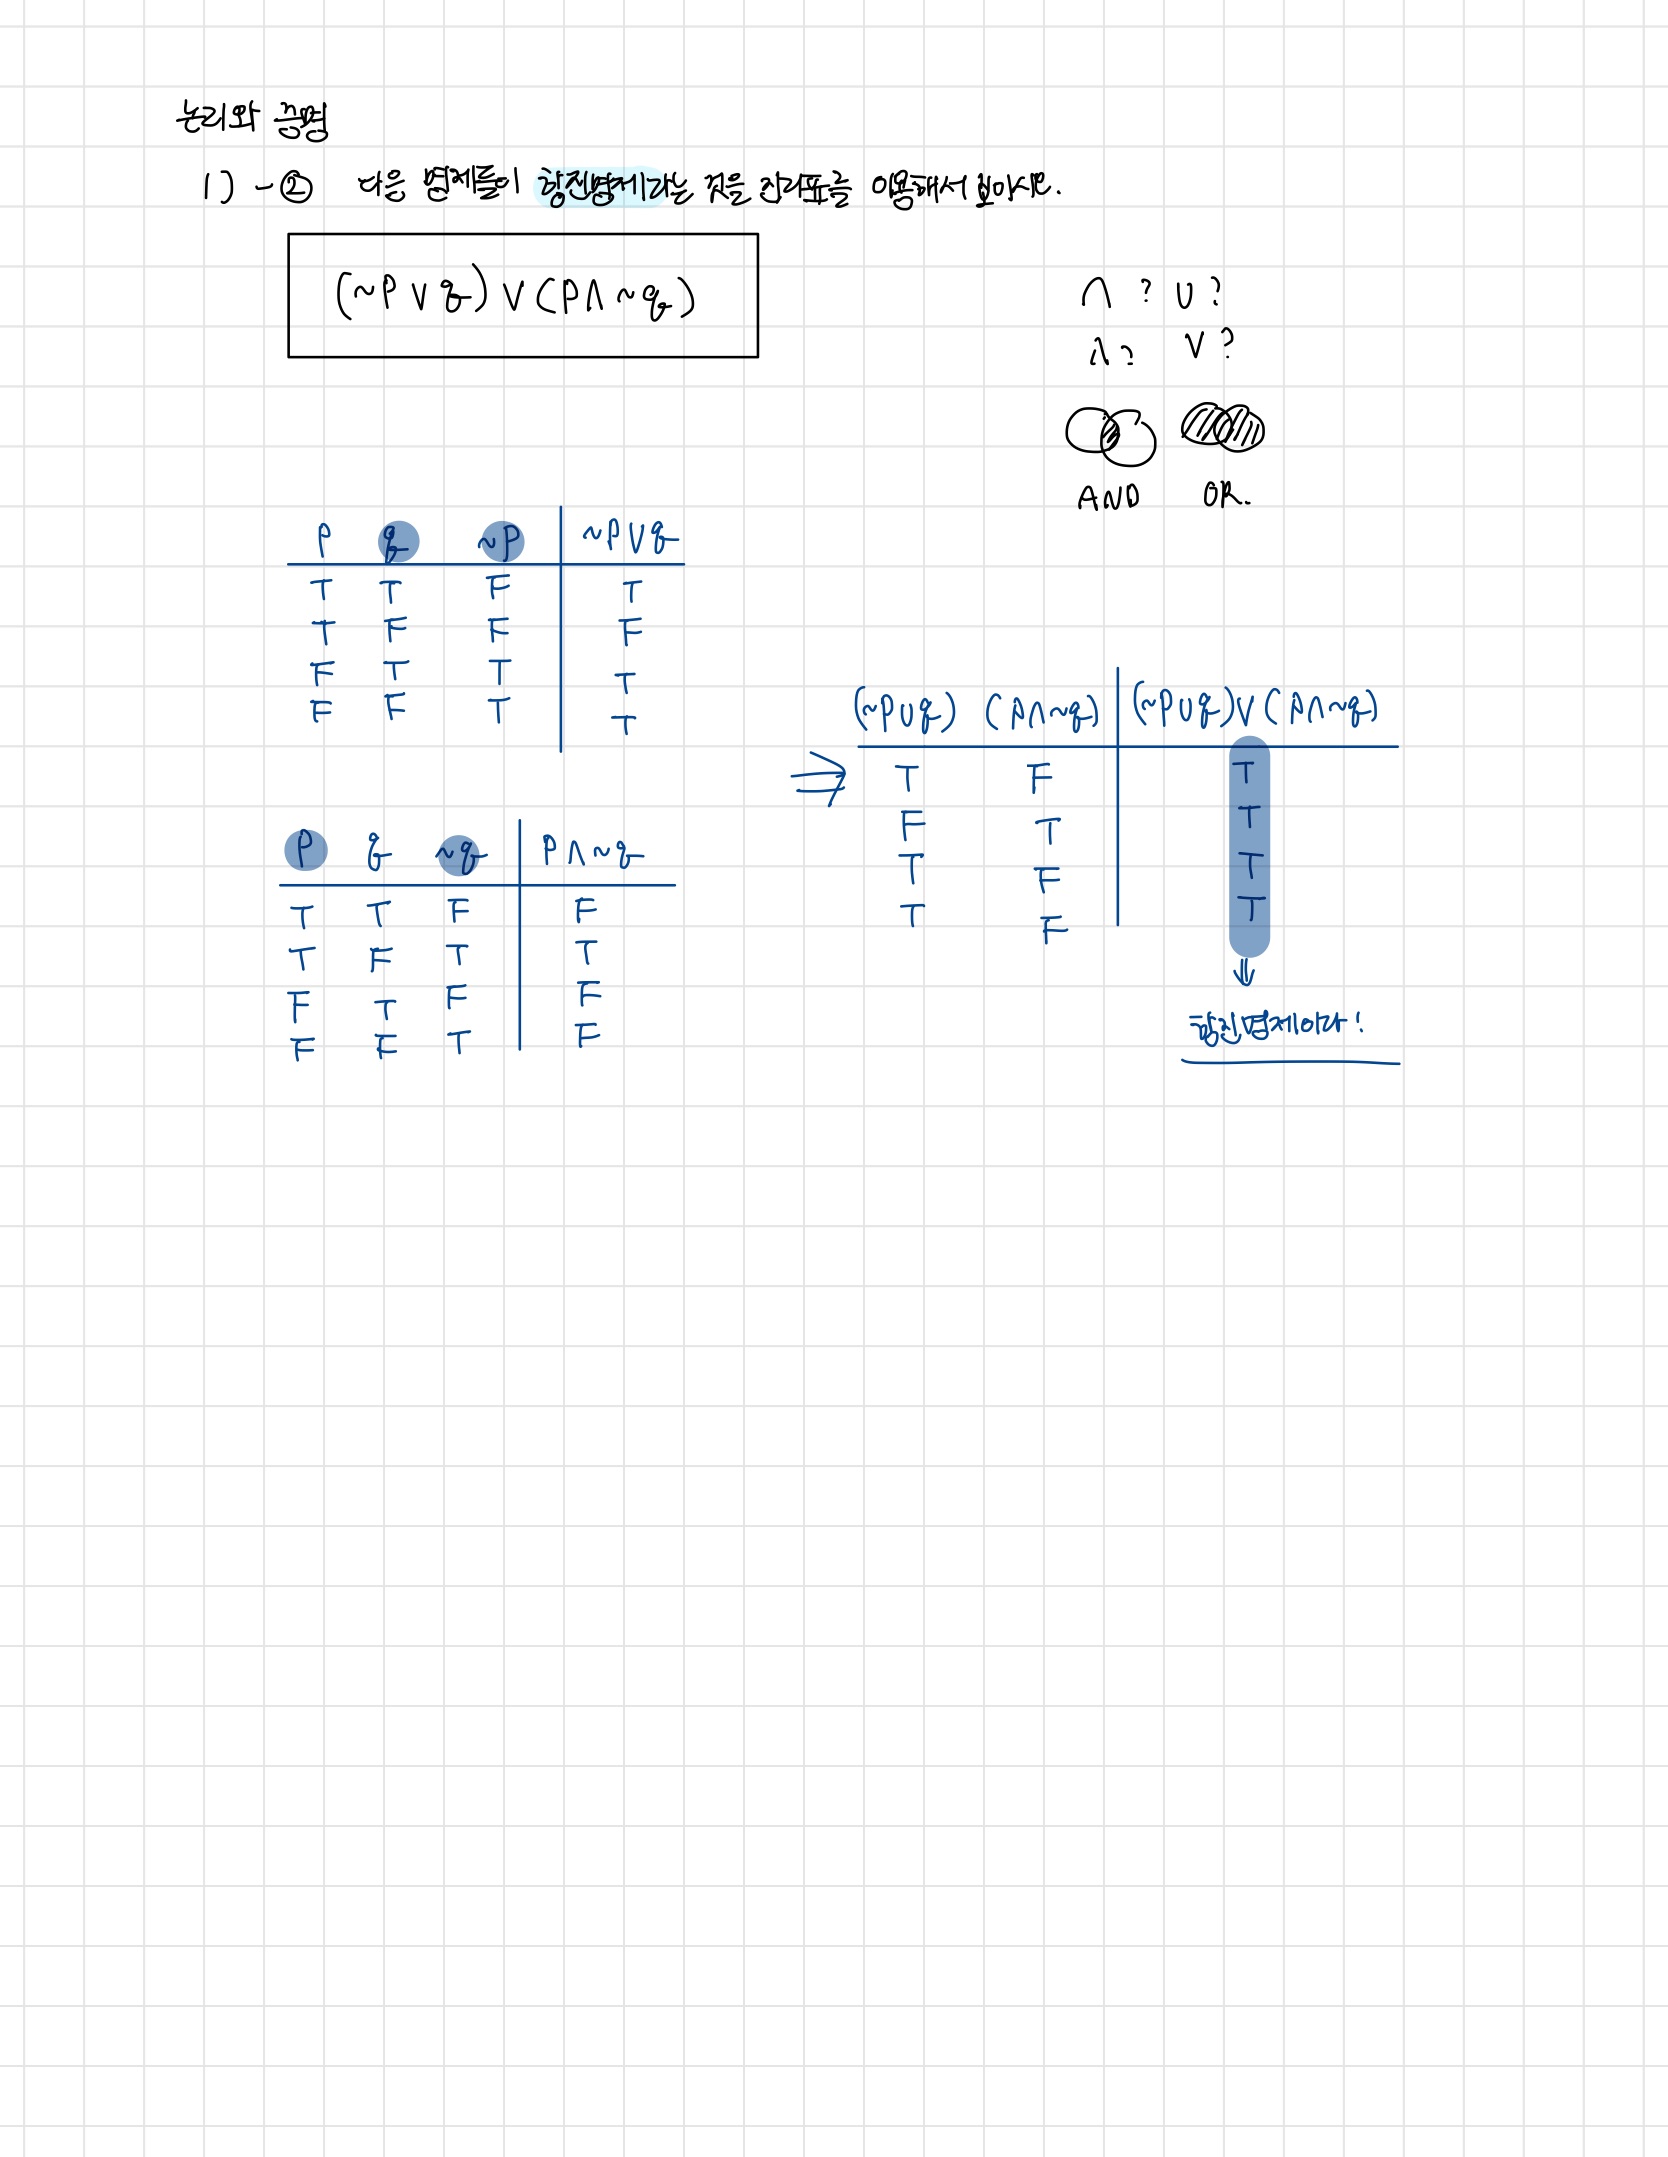 논리와 증명
1) - ② 다음 명제들이 항진명제라는 것을 진리표를 이용해서 보이시오.
(~P ∨ q) ∨ (P ∧ ~q)
∩ ? ∪ ?
∧ ? ∨ ?
AND OR.
P q ~P ~P ∨ q
T T F T
T F F F
F T T T
F F T T
P q ~q P ∧ ~q
T T F F
T F T T
F T F F
F F T F
⇒
(~P ∪ q) (P ∧ ~q) (~P ∪ q) ∨ (P ∧ ~q)
T F T
F T T
T F T
T F T
⇓
항진명제이다!